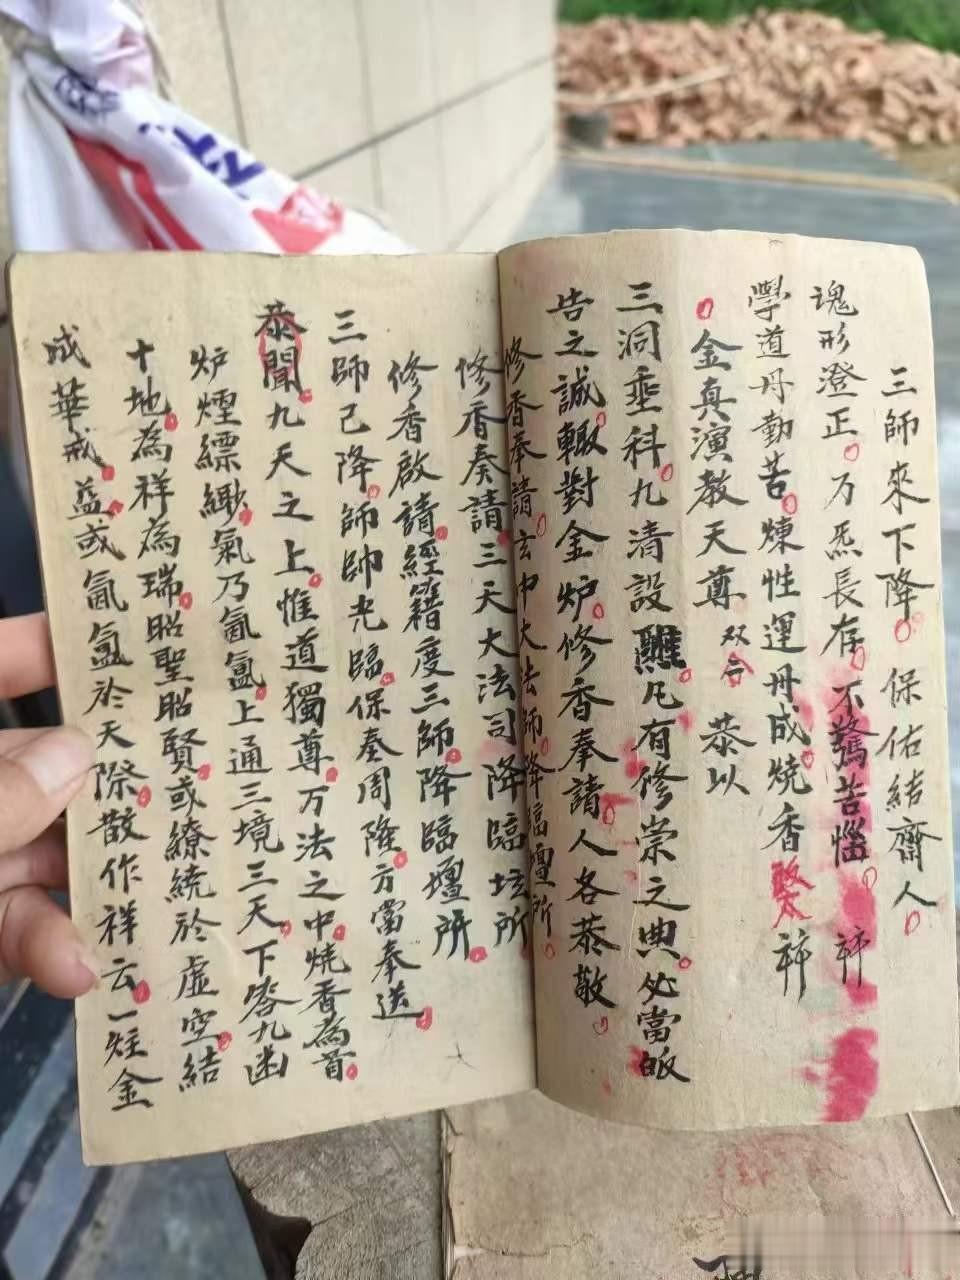 三師來下降保佑結齋人
魂形澄正万炁長存不驚苦惱 梓
學道毋勤苦煉性運丹成燒香 梓
金真演教天尊 双合 恭以
三洞垂科九清設醮凡有修崇之典必當皈
告之誠輙對金炉修香奉請人各恭敬
修香奉請玄中大法師降臨壇所
修香奏請三天大法司降臨垓所
修香啟請經籍度三師降臨壇所
三師已降師帥光臨保奏周隆方當奉送
恭聞九天之上惟道獨尊万法之中燒香為首
炉煙縹緲氣乃氤氳上通三境三天下答九幽
十地為祥為瑞昭聖昭賢或繚繞於虛空結
成華戒益或氤氳於天際散作祥云一炷金